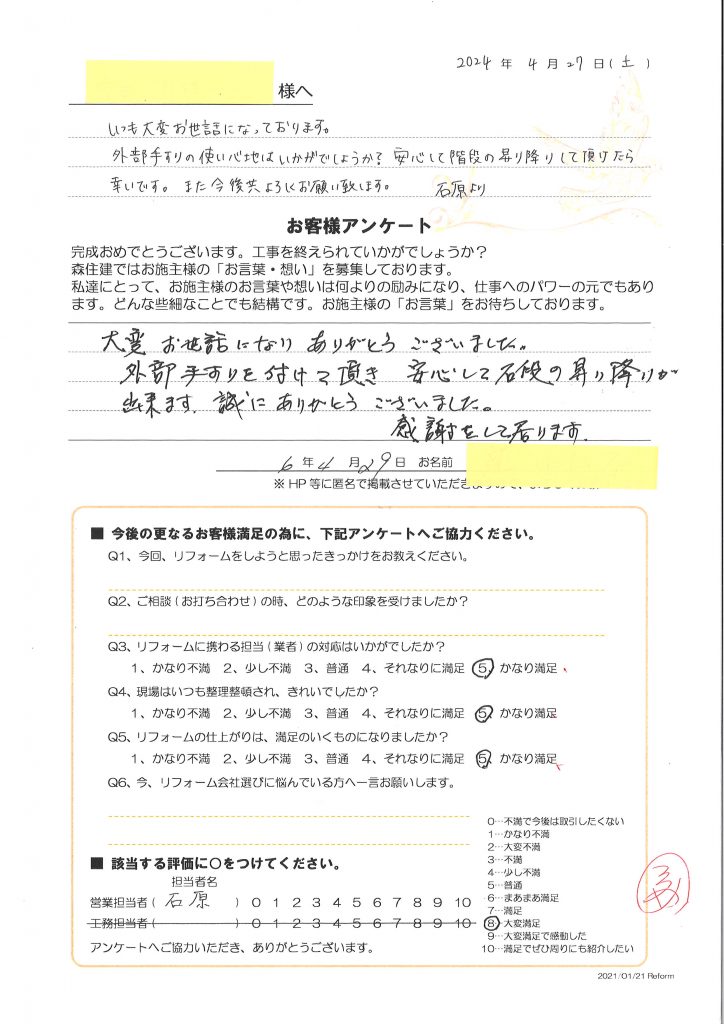 2024年 4月27日(土)
様へ
いつも大変お世話になっております。
外部手すりの使い心地はいかがでしょうか? 安心して階段の昇り降りして頂けたら
幸いです。また今後共よろしくお願い致します。 石原より
お客様アンケート
完成おめでとうございます。工事を終えられていかがでしょうか?
森住建ではお施主様の「お言葉・想い」を募集しております。
私達にとって、お施主様のお言葉や想いは何よりの励みになり、仕事へのパワーの元でもあり
ます。どんな些細なことでも結構です。お施主様の「お言葉」をお待ちしております。
大変 お世話になり ありがとう ございました。
外部手すりを付けて頂き 安心して石段の昇り降りが
出来ます。誠にありがとう ございました。
感謝をして居ります。
6年4月29日 お名前
※HP等に匿名で掲載させていただき
■ 今後の更なるお客様満足の為に、下記アンケートへご協力ください。
Q1、今回、リフォームをしようと思ったきっかけをお教えください。
Q2、ご相談(お打ち合わせ)の時、どのような印象を受けましたか?
Q3、リフォームに携わる担当(業者)の対応はいかがでしたか?
1、かなり不満 2、少し不満 3、普通 4、それなりに満足 5、かなり満足
Q4、現場はいつも整理整頓され、きれいでしたか?
1、かなり不満 2、少し不満 3、普通 4、それなりに満足 5、かなり満足
Q5、リフォームの仕上がりは、満足のいくものになりましたか?
1、かなり不満 2、少し不満 3、普通 4、それなりに満足 5、かなり満足
Q6、今、リフォーム会社選びに悩んでいる方へ一言お願いします。
0…不満で今後は取引したくない
1…かなり不満
2…大変不満
3…不満
4…少し不満
5…普通
6…まあまあ満足
7…満足
8…大変満足
9…大変満足で感動した
10…満足でぜひ周りにも紹介したい
■ 該当する評価に○をつけてください。
担当者名
営業担当者( 石原 ) 0 1 2 3 4 5 6 7 8 9 10
工務担当者( ) 0 1 2 3 4 5 6 7 8 9 10
アンケートへご協力いただき、ありがとうございます。
2021/01/21 Reform